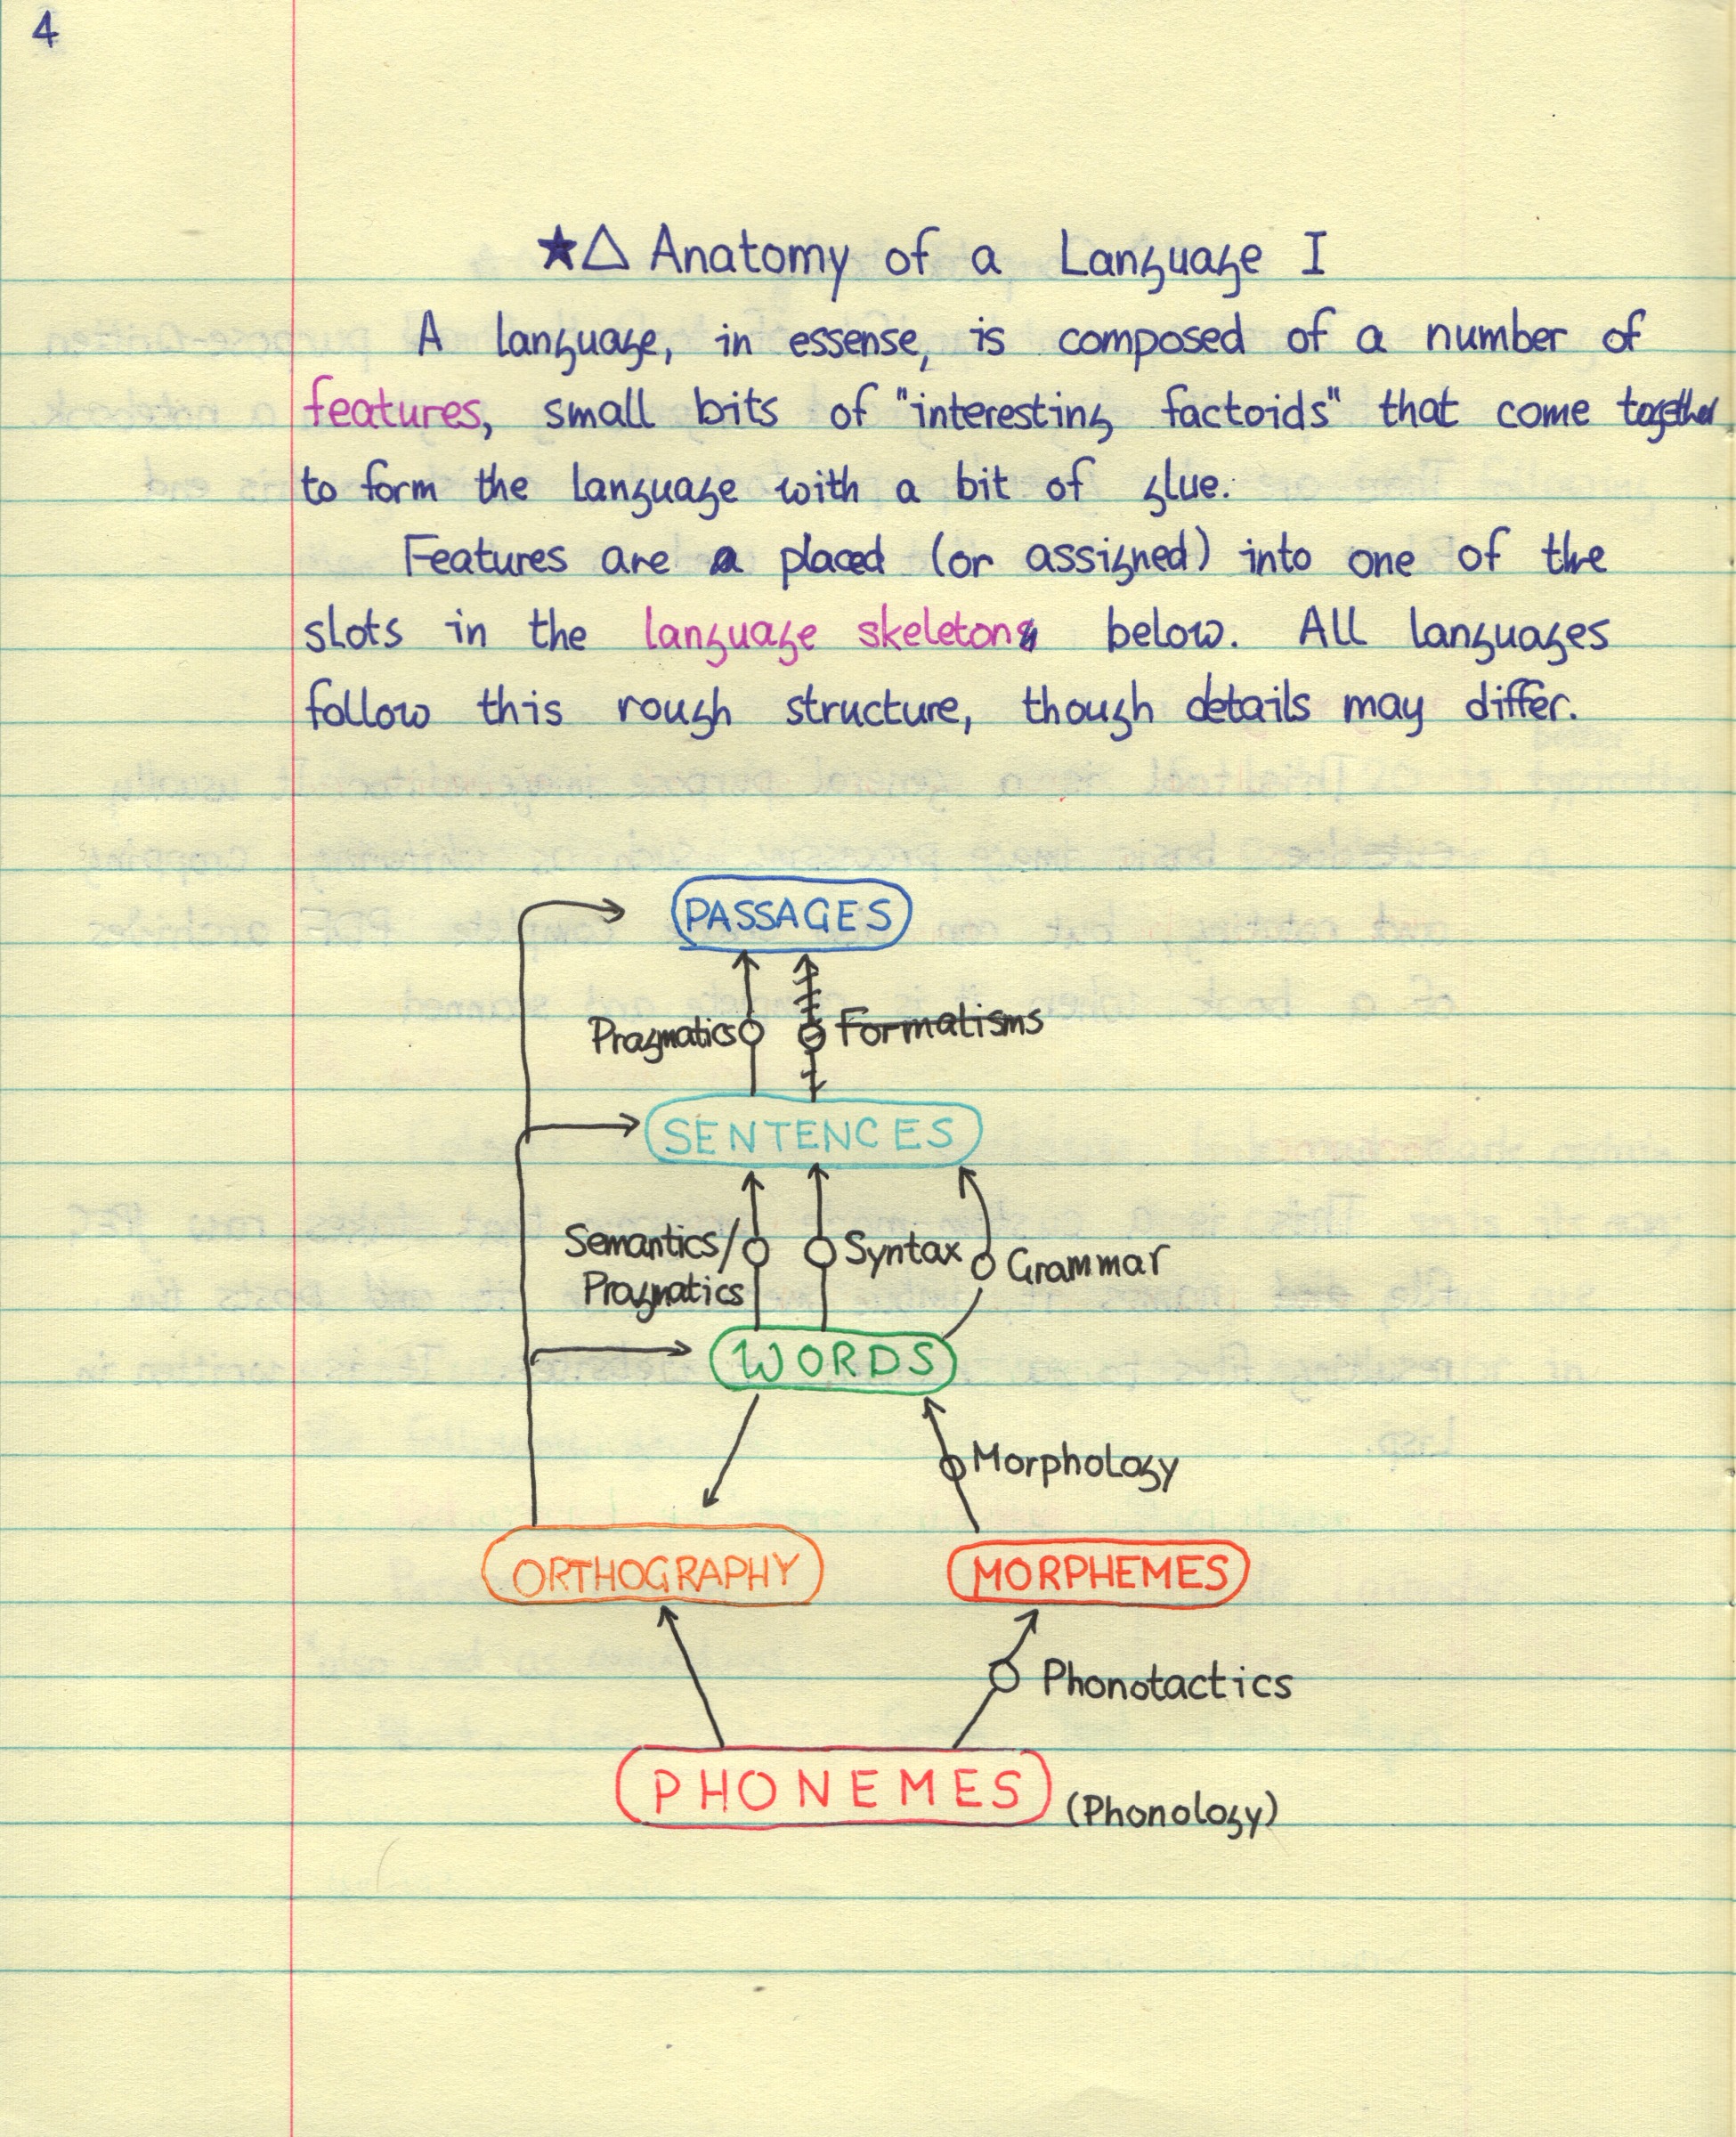 4
★△ Anatomy of a Language I
A language, in essense, is composed of a number of
features, small bits of "interesting factoids" that come together
to form the language with a bit of glue.
Features are a placed (or assigned) into one of the
slots in the language skeleton below. All languages
follow this rough structure, though details may differ.
PASSAGES
Pragmatics Formalisms
SENTENCES
Semantics/ Syntax Grammar
Pragmatics
WORDS
Morphology
ORTHOGRAPHY MORPHEMES
Phonotactics
PHONEMES (Phonology)